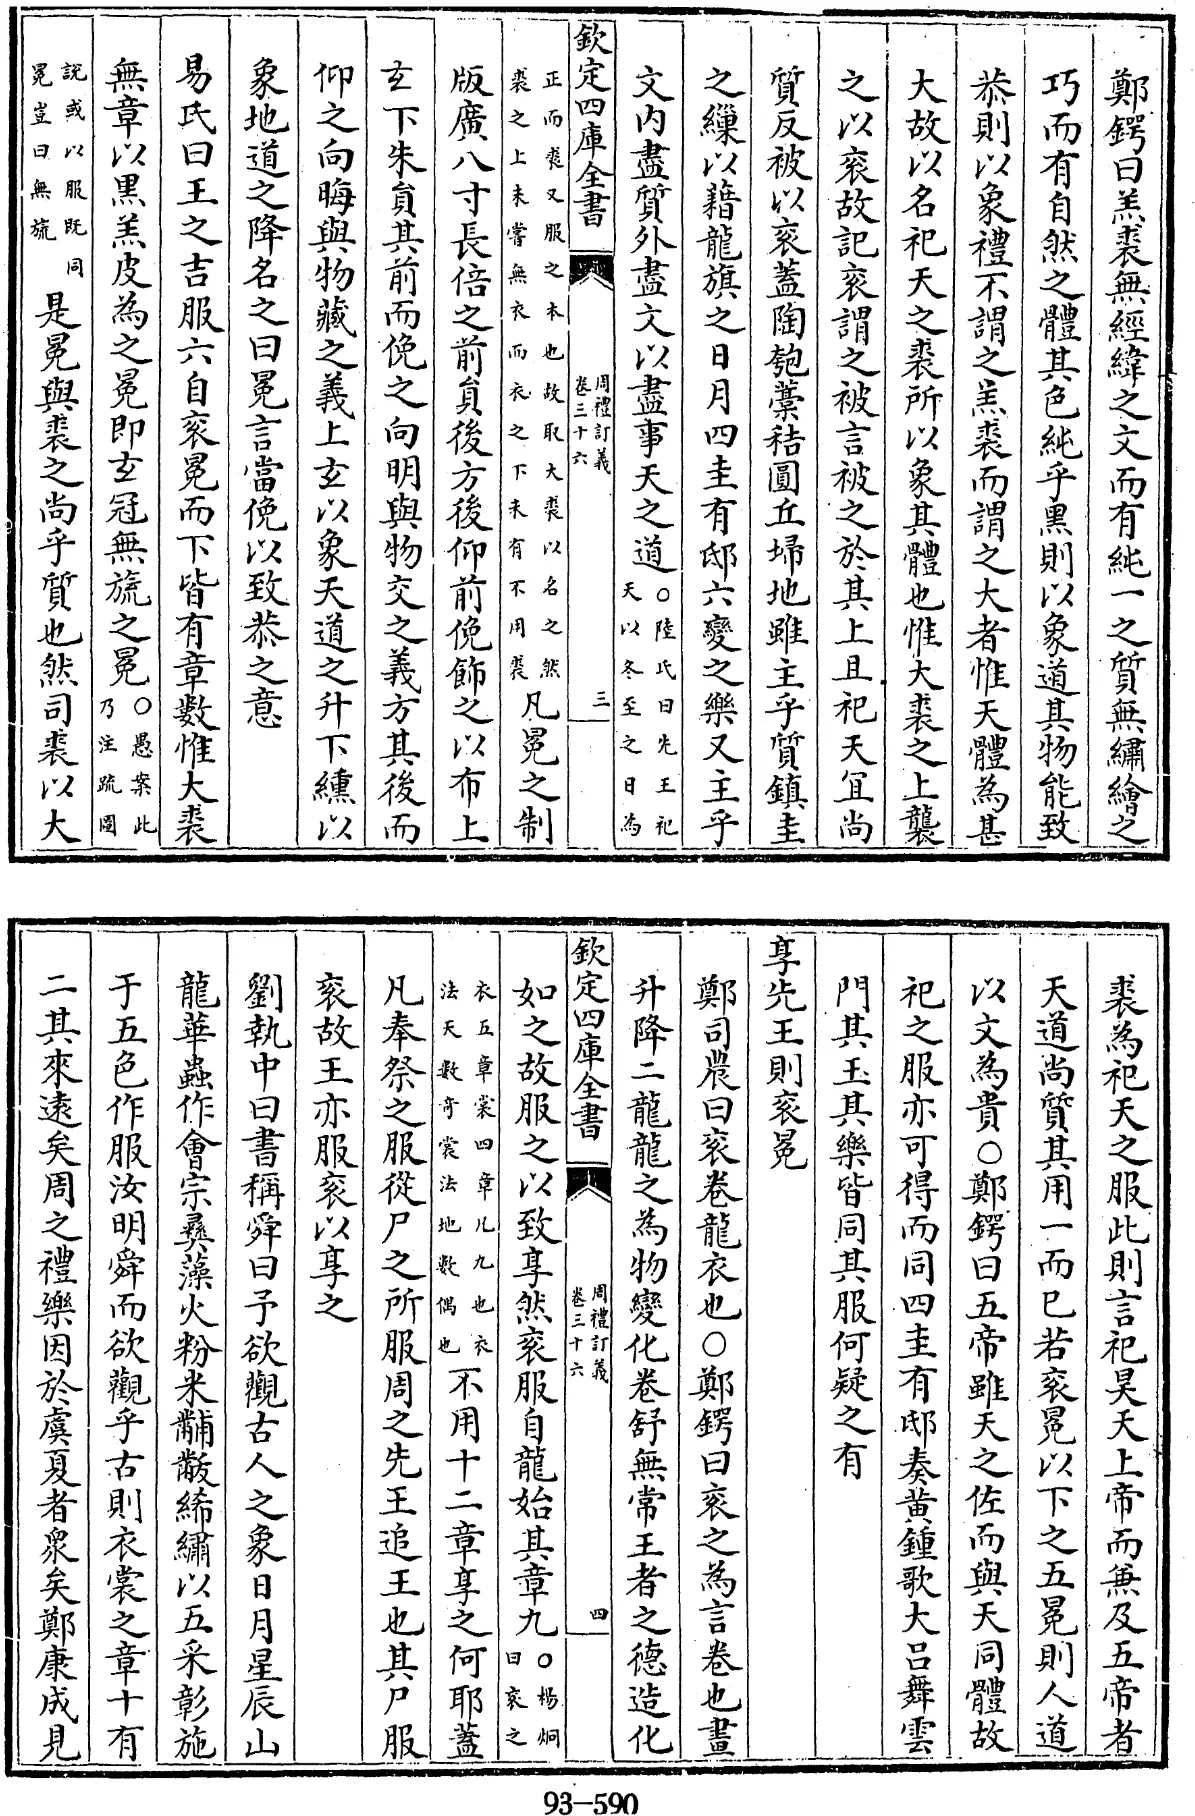 鄭鍔曰羔裘無經緯之文而有純一之質無繡繪之
巧而有自然之體其色純乎黑則以象道其物能致
恭則以象禮不謂之羔裘而謂之大者惟天體為甚
大故以名祀天之裘所以象其體也惟大裘之上襲
之以衮故記衮謂之被言被之於其上且祀天宜尚
質反被以衮蓋陶匏藁秸圓丘埽地雖主乎質鎮圭
之繅以藉龍旗之日月四圭有邸六變之樂又主乎
文内盡質外盡文以盡事天之道○陸氏曰先王祀
天以冬至之日為
欽定四庫全書
周禮訂義
卷三十六
三
正而裘又服之本也故取大裘以名之然
裘之上未嘗無衣而衣之下未有不用裘
凡冕之制
版廣八寸長倍之前負後方後仰前俛飾之以布上
玄下朱負其前而俛之向明與物交之義方其後而
仰之向晦與物藏之義上玄以象天道之升下纁以
象地道之降名之曰冕言當俛以致恭之意
易氏曰王之吉服六自衮冕而下皆有章數惟大裘
無章以黑羔皮為之冕即玄冠無旒之冕○愚案此
乃注疏圖
説或以服既同
冕豈曰無旒
是冕與裘之尚乎質也然司裘以大
裘為祀天之服此則言祀昊天上帝而兼及五帝者
天道尚質其用一而已若衮冕以下之五冕則人道
以文為貴○鄭鍔曰五帝雖天之佐而與天同體故
祀之服亦可得而同四圭有邸奏黄鍾歌大呂舞雲
門其玉其樂皆同其服何疑之有
享先王則衮冕
鄭司農曰衮卷龍衣也○鄭鍔曰衮之為言卷也畫
升降二龍龍之為物變化卷舒無常王者之德造化
欽定四庫全書
周禮訂義
卷三十六
四
如之故服之以致享然衮服自龍始其章九○楊炯
曰衮之
衣五章裳四章凡九也衣
法天數奇裳法地數偶也
不用十二章享之何耶蓋
凡奉祭之服從尸之所服周之先王追王也其尸服
衮故王亦服衮以享之
劉執中曰書稱舜曰予欲觀古人之象日月星辰山
龍華蟲作會宗彝藻火粉米黼黻絺繡以五采彰施
于五色作服汝明舜而欲觀乎古則衣裳之章十有
二其來遠矣周之禮樂因於虞夏者衆矣鄭康成見
93-590